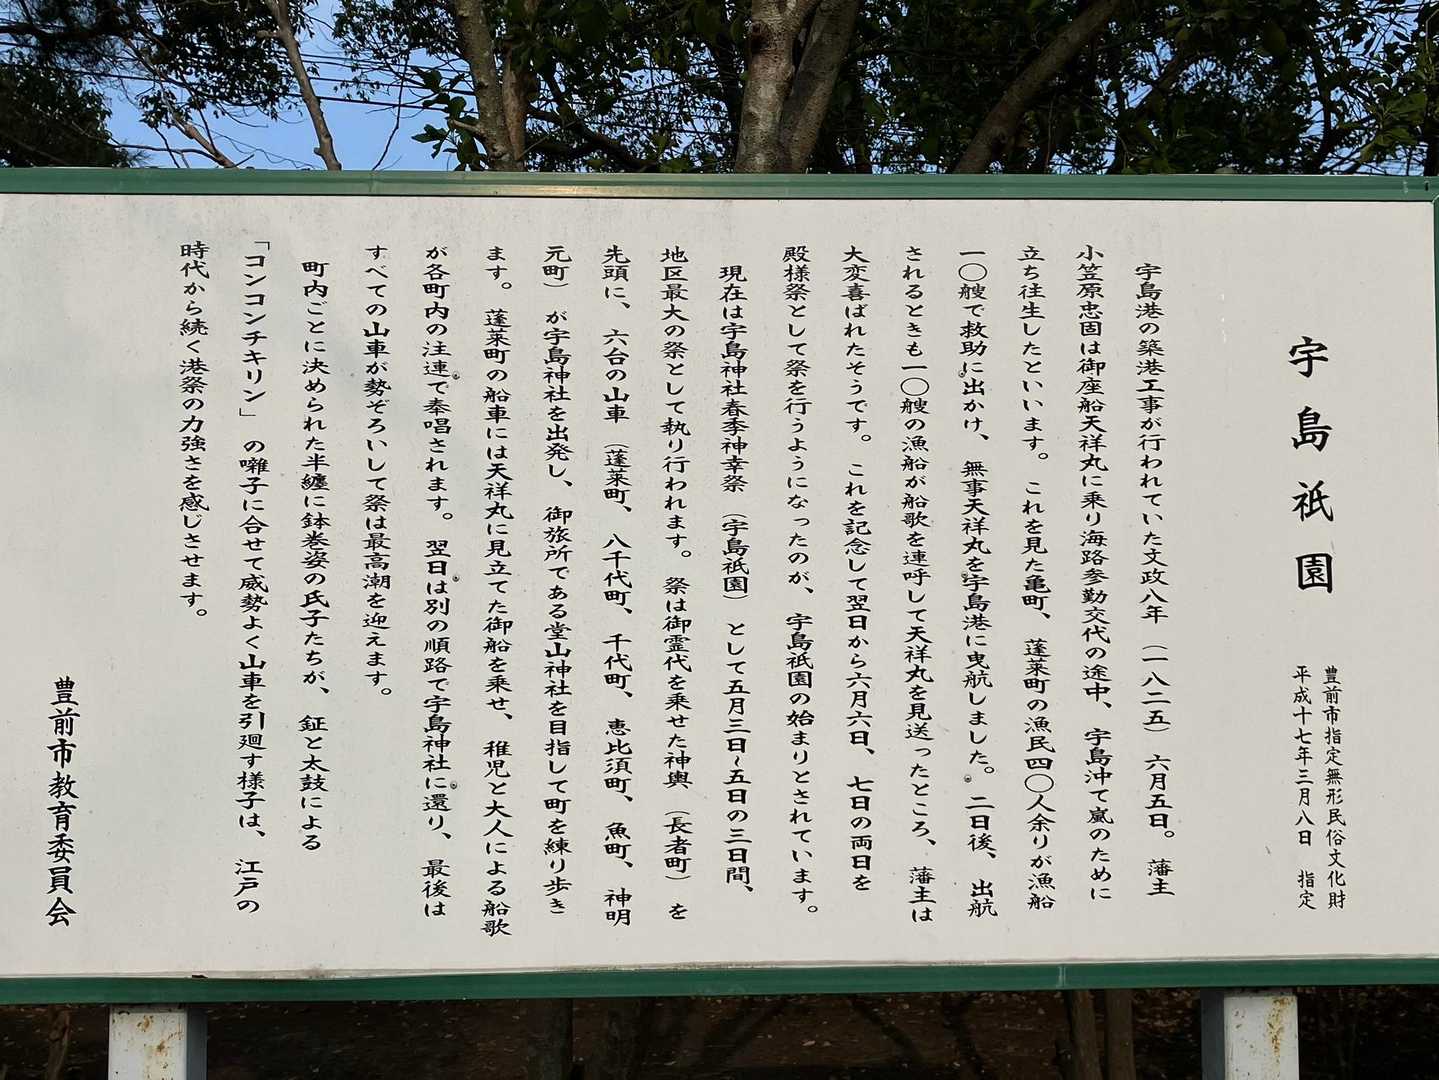 宇島祇園
豊前市指定無形民俗文化財
平成十七年三月八日　指定
宇島港の築港工事が行われていた文政八年（一八二五）六月五日。藩主
小笠原忠固は御座船天祥丸に乗り海路参勤交代の途中、宇島沖で嵐のために
立ち往生したといいます。これを見た亀町、蓬莱町の漁民四〇人余りが漁船
一〇艘で救助に出かけ、無事天祥丸を宇島港に曳航しました。二日後、出航
されるときも一〇艘の漁船が船歌を連呼して天祥丸を見送ったところ、藩主は
大変喜ばれたそうです。これを記念して翌日から六月六日、七日の両日を
殿様祭として祭を行うようになったのが、宇島祇園の始まりとされています。
現在は宇島神社春季神幸祭（宇島祇園）として五月三日～五日の三日間、
地区最大の祭として執り行われます。祭は御霊代を乗せた神輿（長者町）を
先頭に、六台の山車（蓬莱町、八千代町、千代町、恵比須町、魚町、神明
元町）が宇島神社を出発し、御旅所である堂山神社を目指して町を練り歩き
ます。蓬莱町の船車には天祥丸に見立てた御船を乗せ、稚児と大人による船歌
が各町内の注連で奉唱されます。翌日は別の順路で宇島神社に還り、最後は
すべての山車が勢ぞろいして祭は最高潮を迎えます。
町内ごとに決められた半纏に鉢巻姿の氏子たちが、鉦と太鼓による
「コンコンチキリン」の囃子に合せて威勢よく山車を引廻す様子は、江戸の
時代から続く港祭の力強さを感じさせます。
豊前市教育委員会